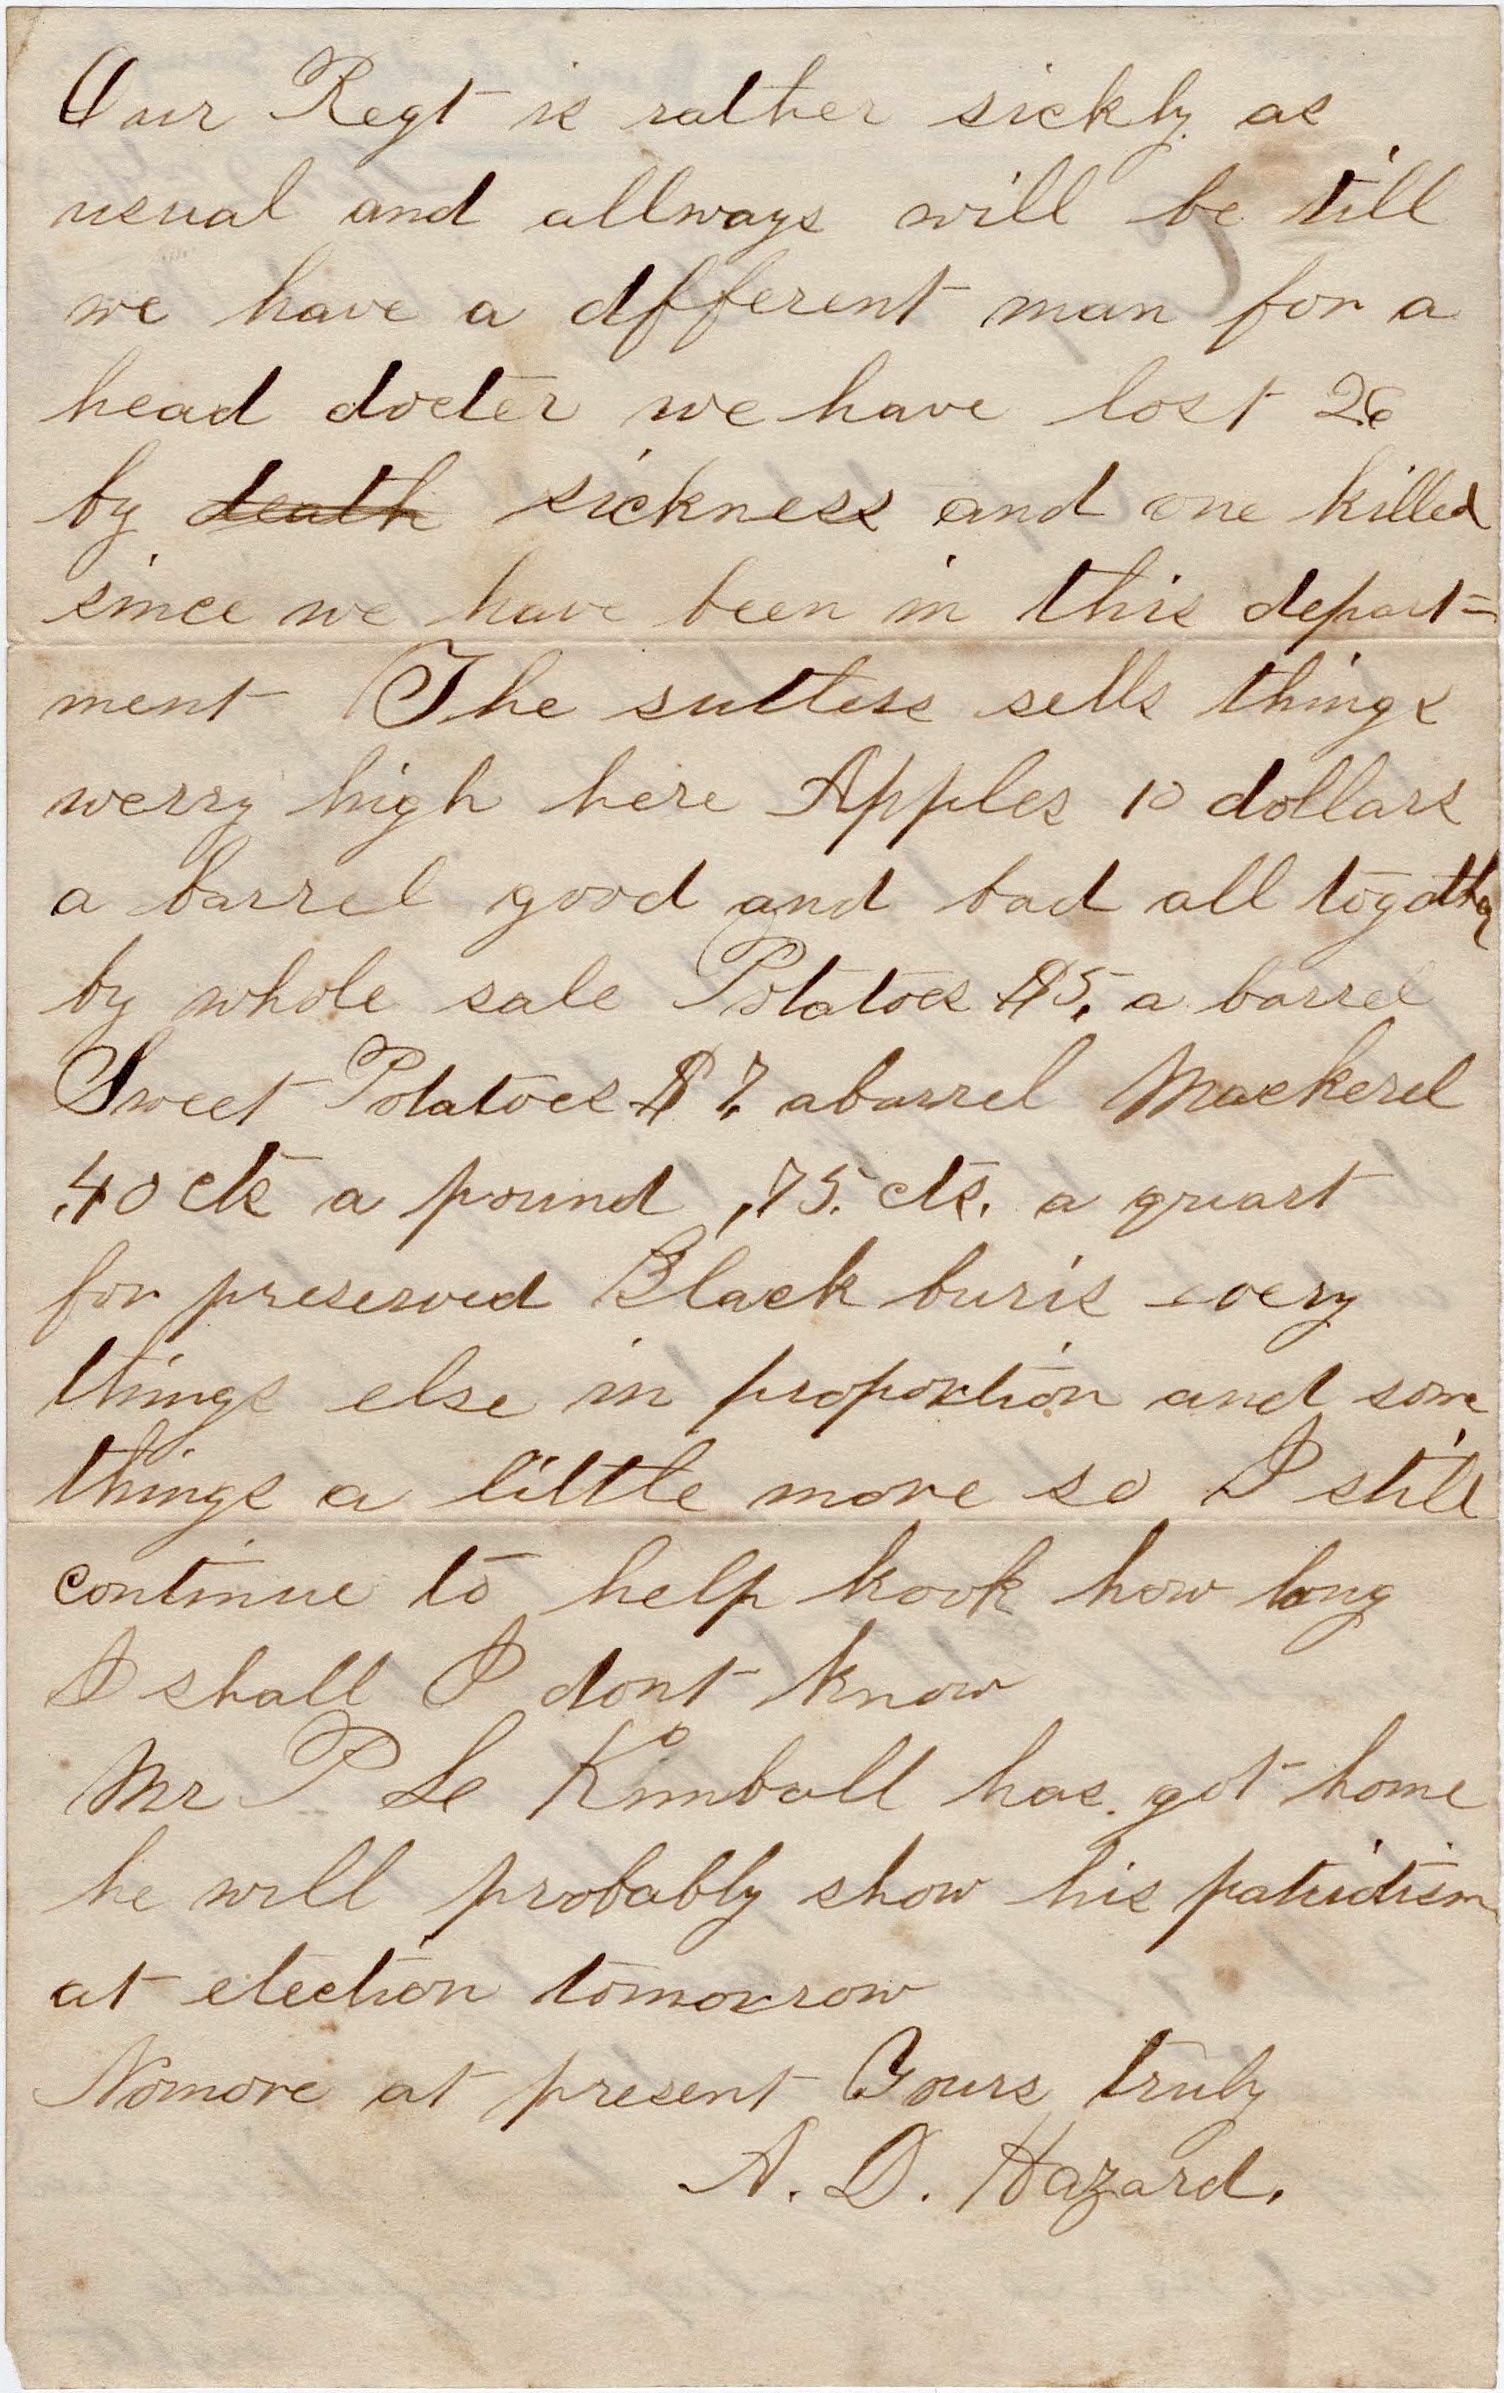 Our Regt is rather sickly as
usual and allways will be till
we have a dfferent man for a
head docter we have lost 26
by death sickness and one killed
since we have been in this depart=
ment The sutters sells things
werry high here Apples 10 dollars
a barrel good and bad all together
by whole sale Potatoes $5. a barrel
Sweet Potatoes $7. a barrel Mackerel
.40 cts a pound ,75. cts. a quart
for preserved Black buris every
things else in proportion and some
things a little more so I still
continue to help kook how long
I shall I dont know
Mr P Le Kimball has got home
he will probably show his patriotism
at election tomorrow
Nomore at present Yours truly
A. D. Hazard.